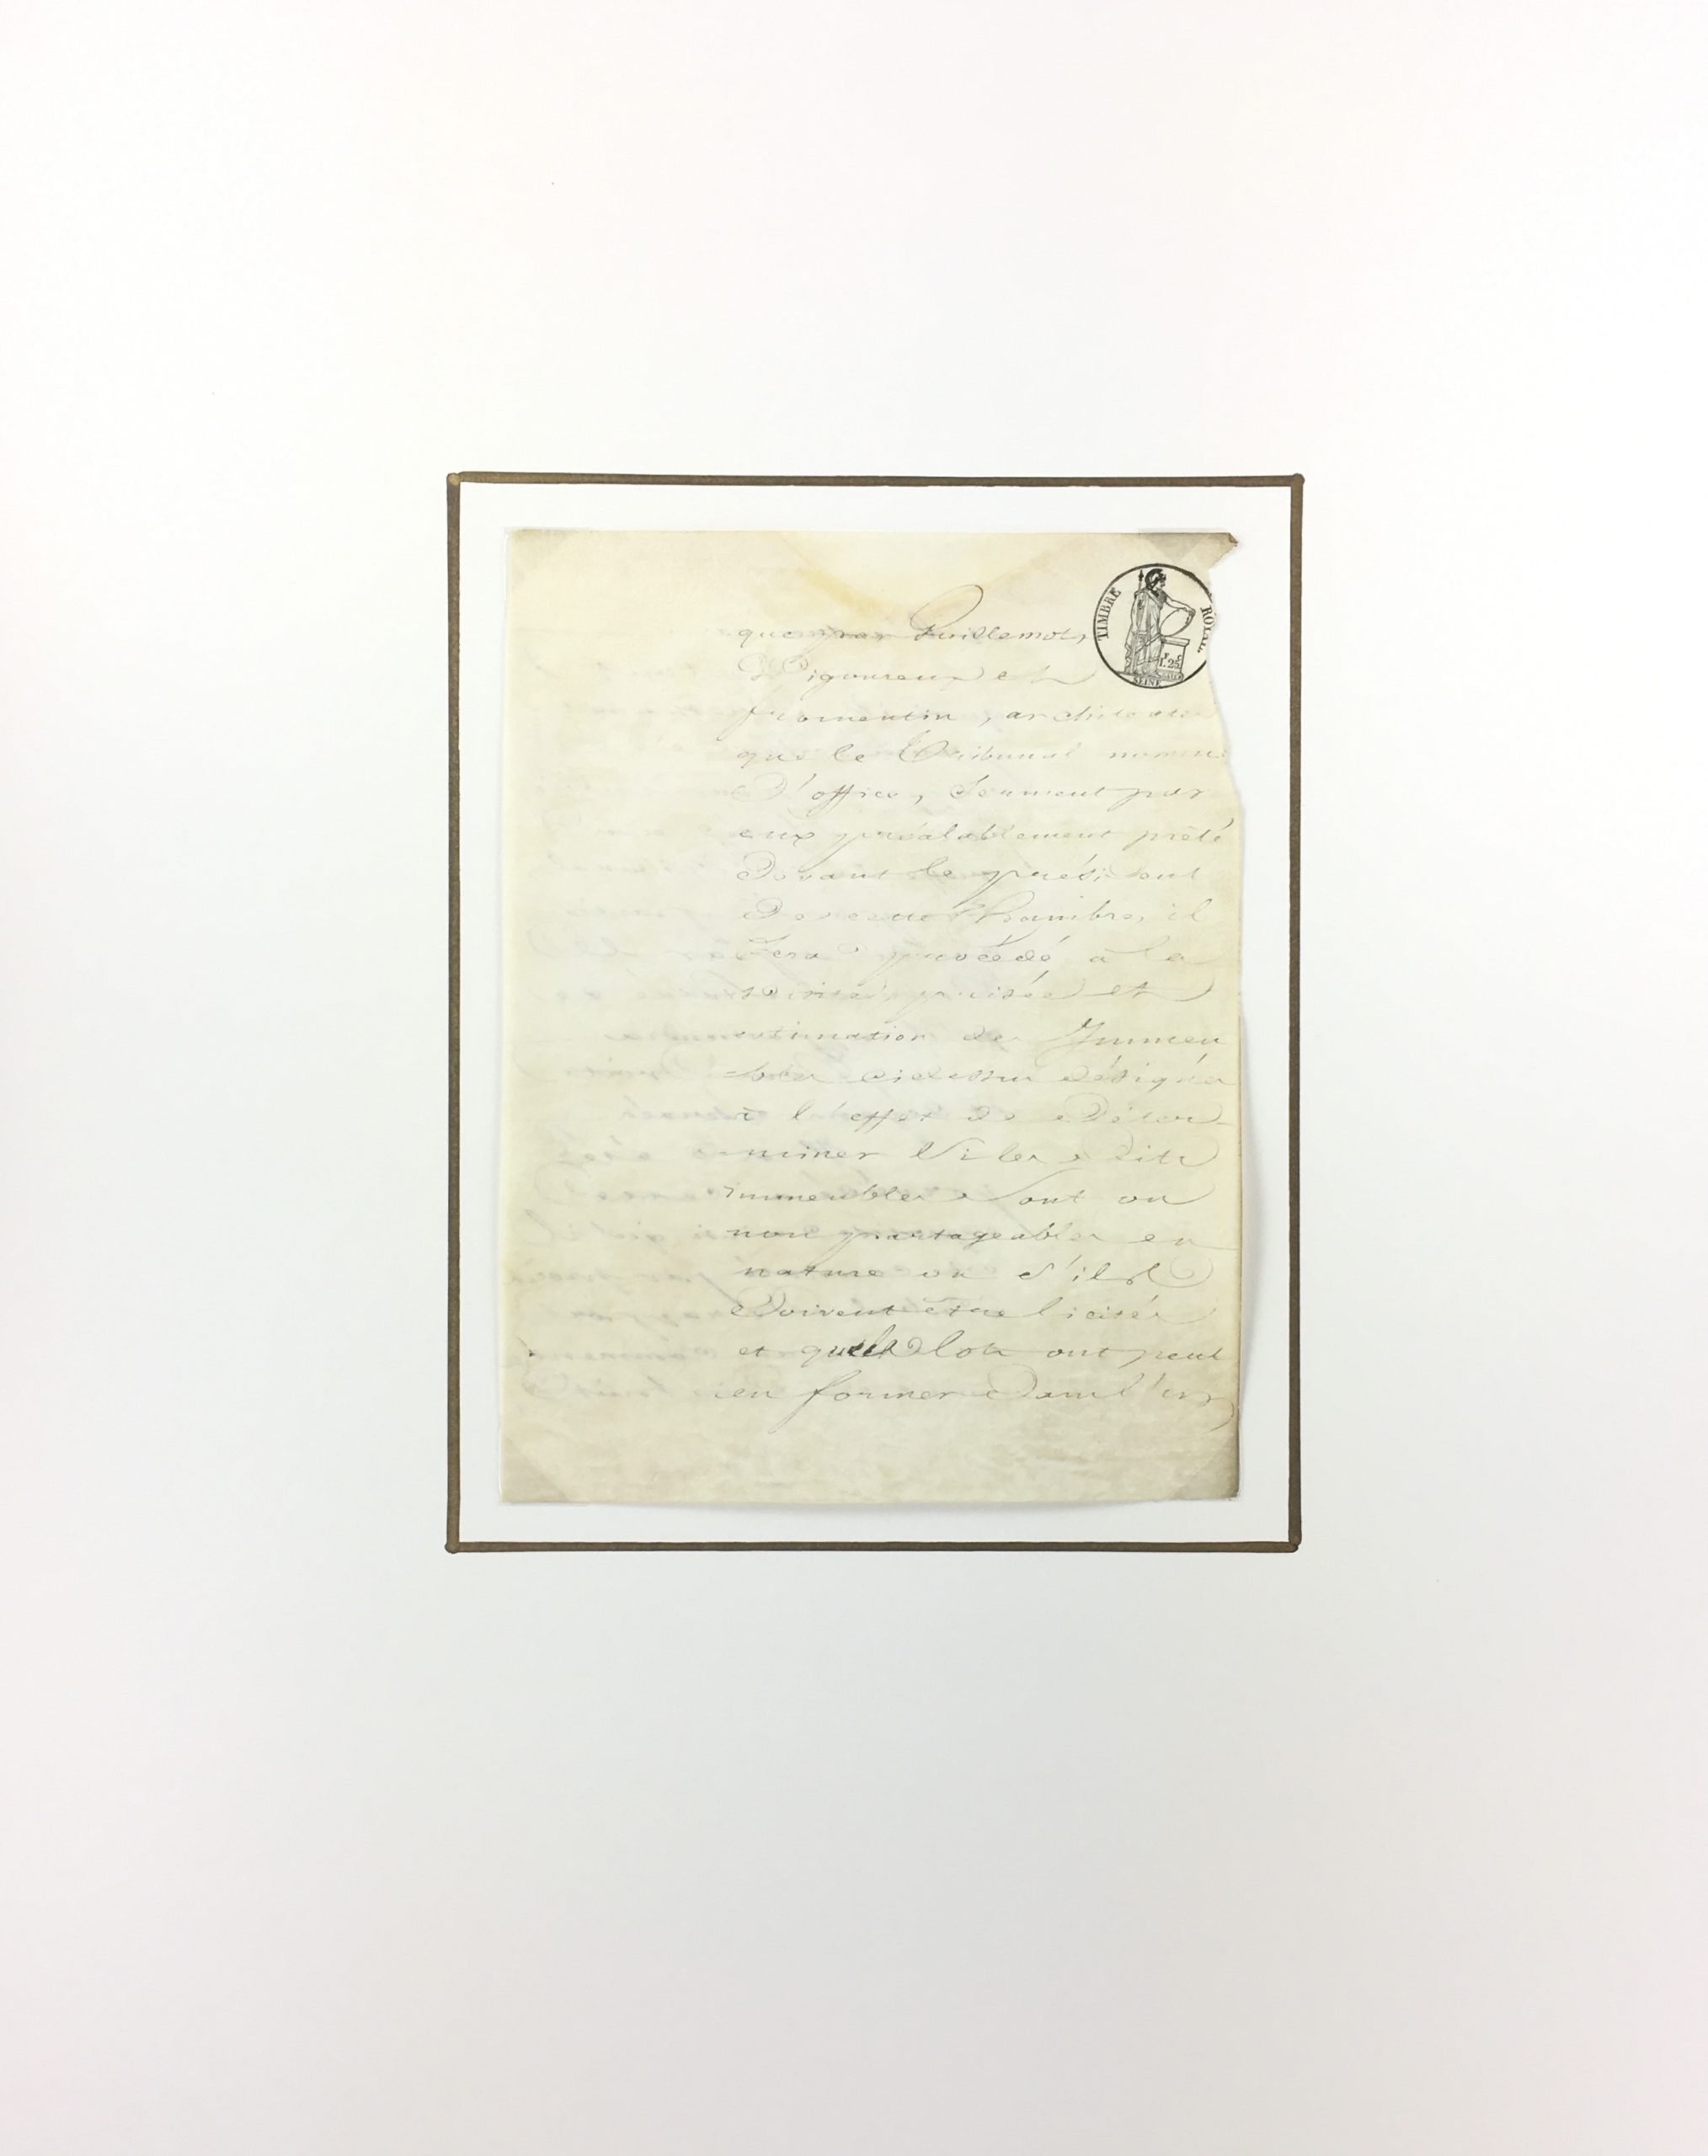 TIMBRE ROYAL
1. 25
SEINE
que par Guillemot,
Vigoureux et
fromentin, architectes
que le Tribunal nomme
D'office, Serment par
eux préalablement prêté
Devant le président
De cette Chambre, il
Sera procédé à la
Visite, prisée et
estimation des Immeu
=bles cidessus désignés
à l'effet de Déter-
miner Si les dits
immeubles Sont ou
non partageables en
nature ou S'ils
Doivent être licités
et quels lots ont peut
en former Dans l'un